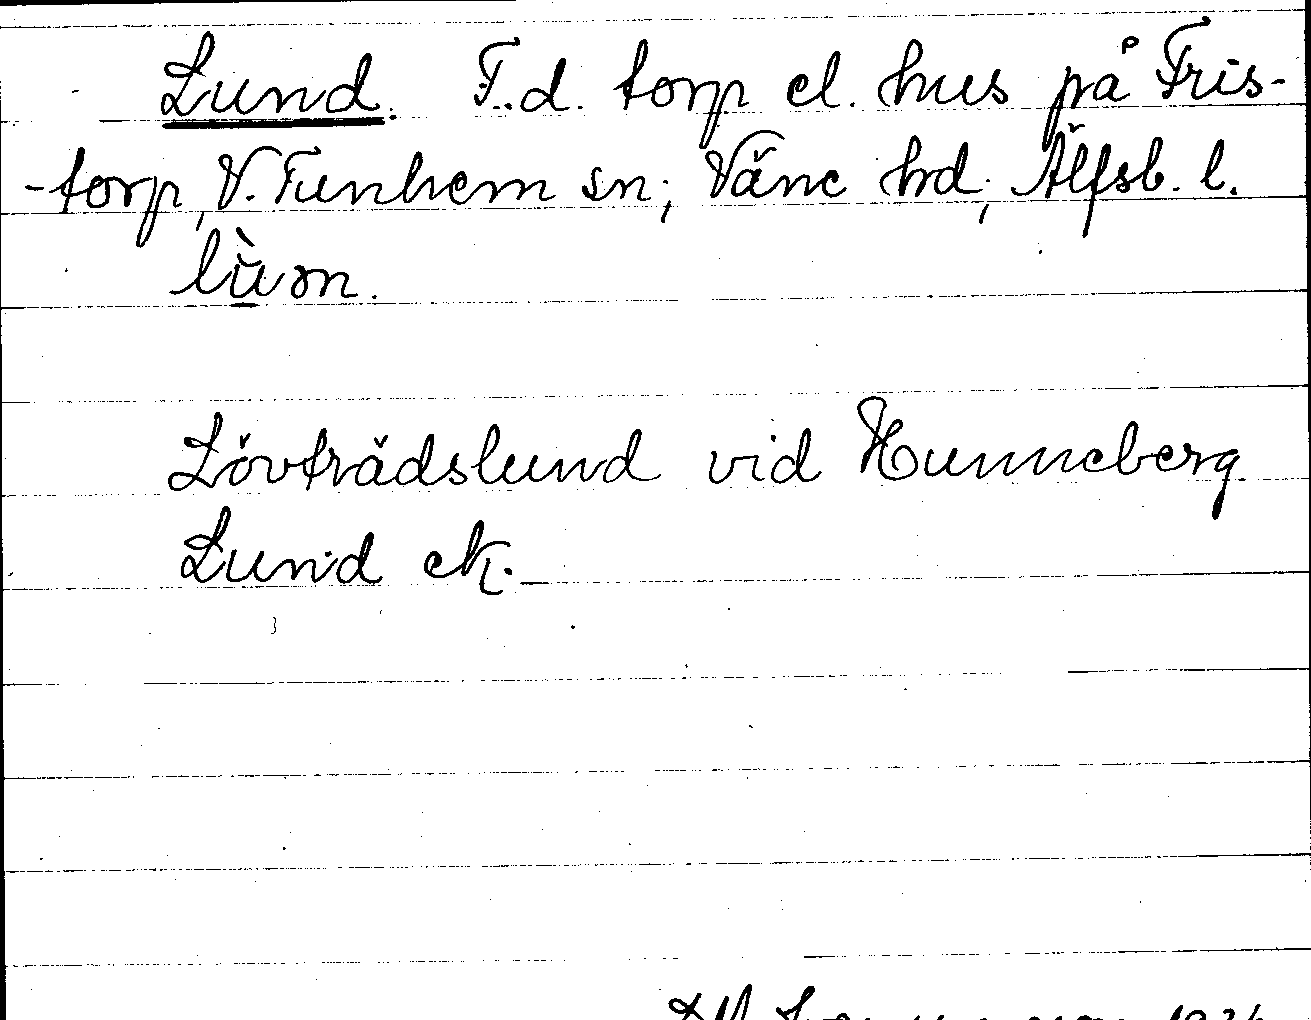 Lund. F.d. torp el. hus på Fris-
-torp, V. Tunhem sn; Väne hd; Älfsb. l.
Lövträdslund vid Hunneberg.
Lund ek.